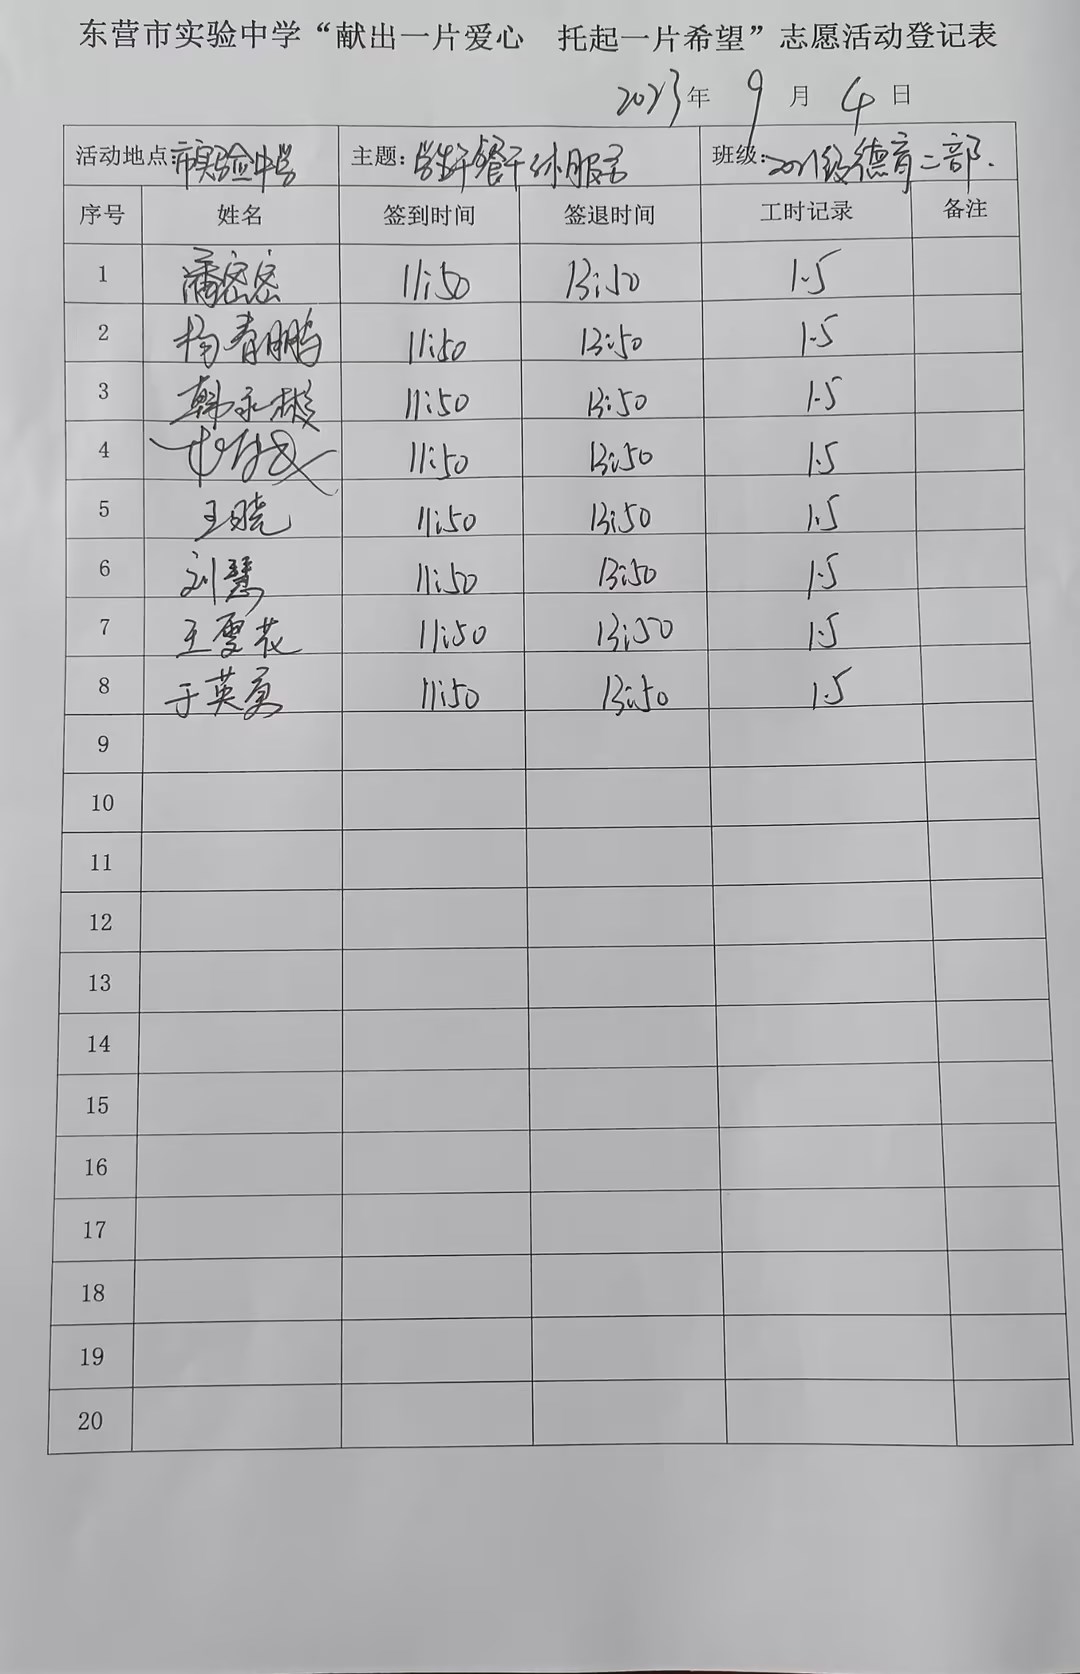 东营市实验中学“献出一片爱心　托起一片希望”志愿活动登记表
2023年 9 月 4 日
活动地点:市实验中学 主题:学生午餐午休服务 班级:2021级德育二部.
序号 姓名 签到时间 签退时间 工时记录 备注
1 潘密密 11:50 13:50 1.5
2 杨青鹏 11:50 13:50 1.5
3 韩永彬 11:50 13:50 1.5
4 11:50 13:50 1.5
5 王晓 11:50 13:50 1.5
6 刘慧 11:50 13:50 1.5
7 王雪花 11:50 13:50 1.5
8 于英 11:50 13:50 1.5
9
10
11
12
13
14
15
16
17
18
19
20